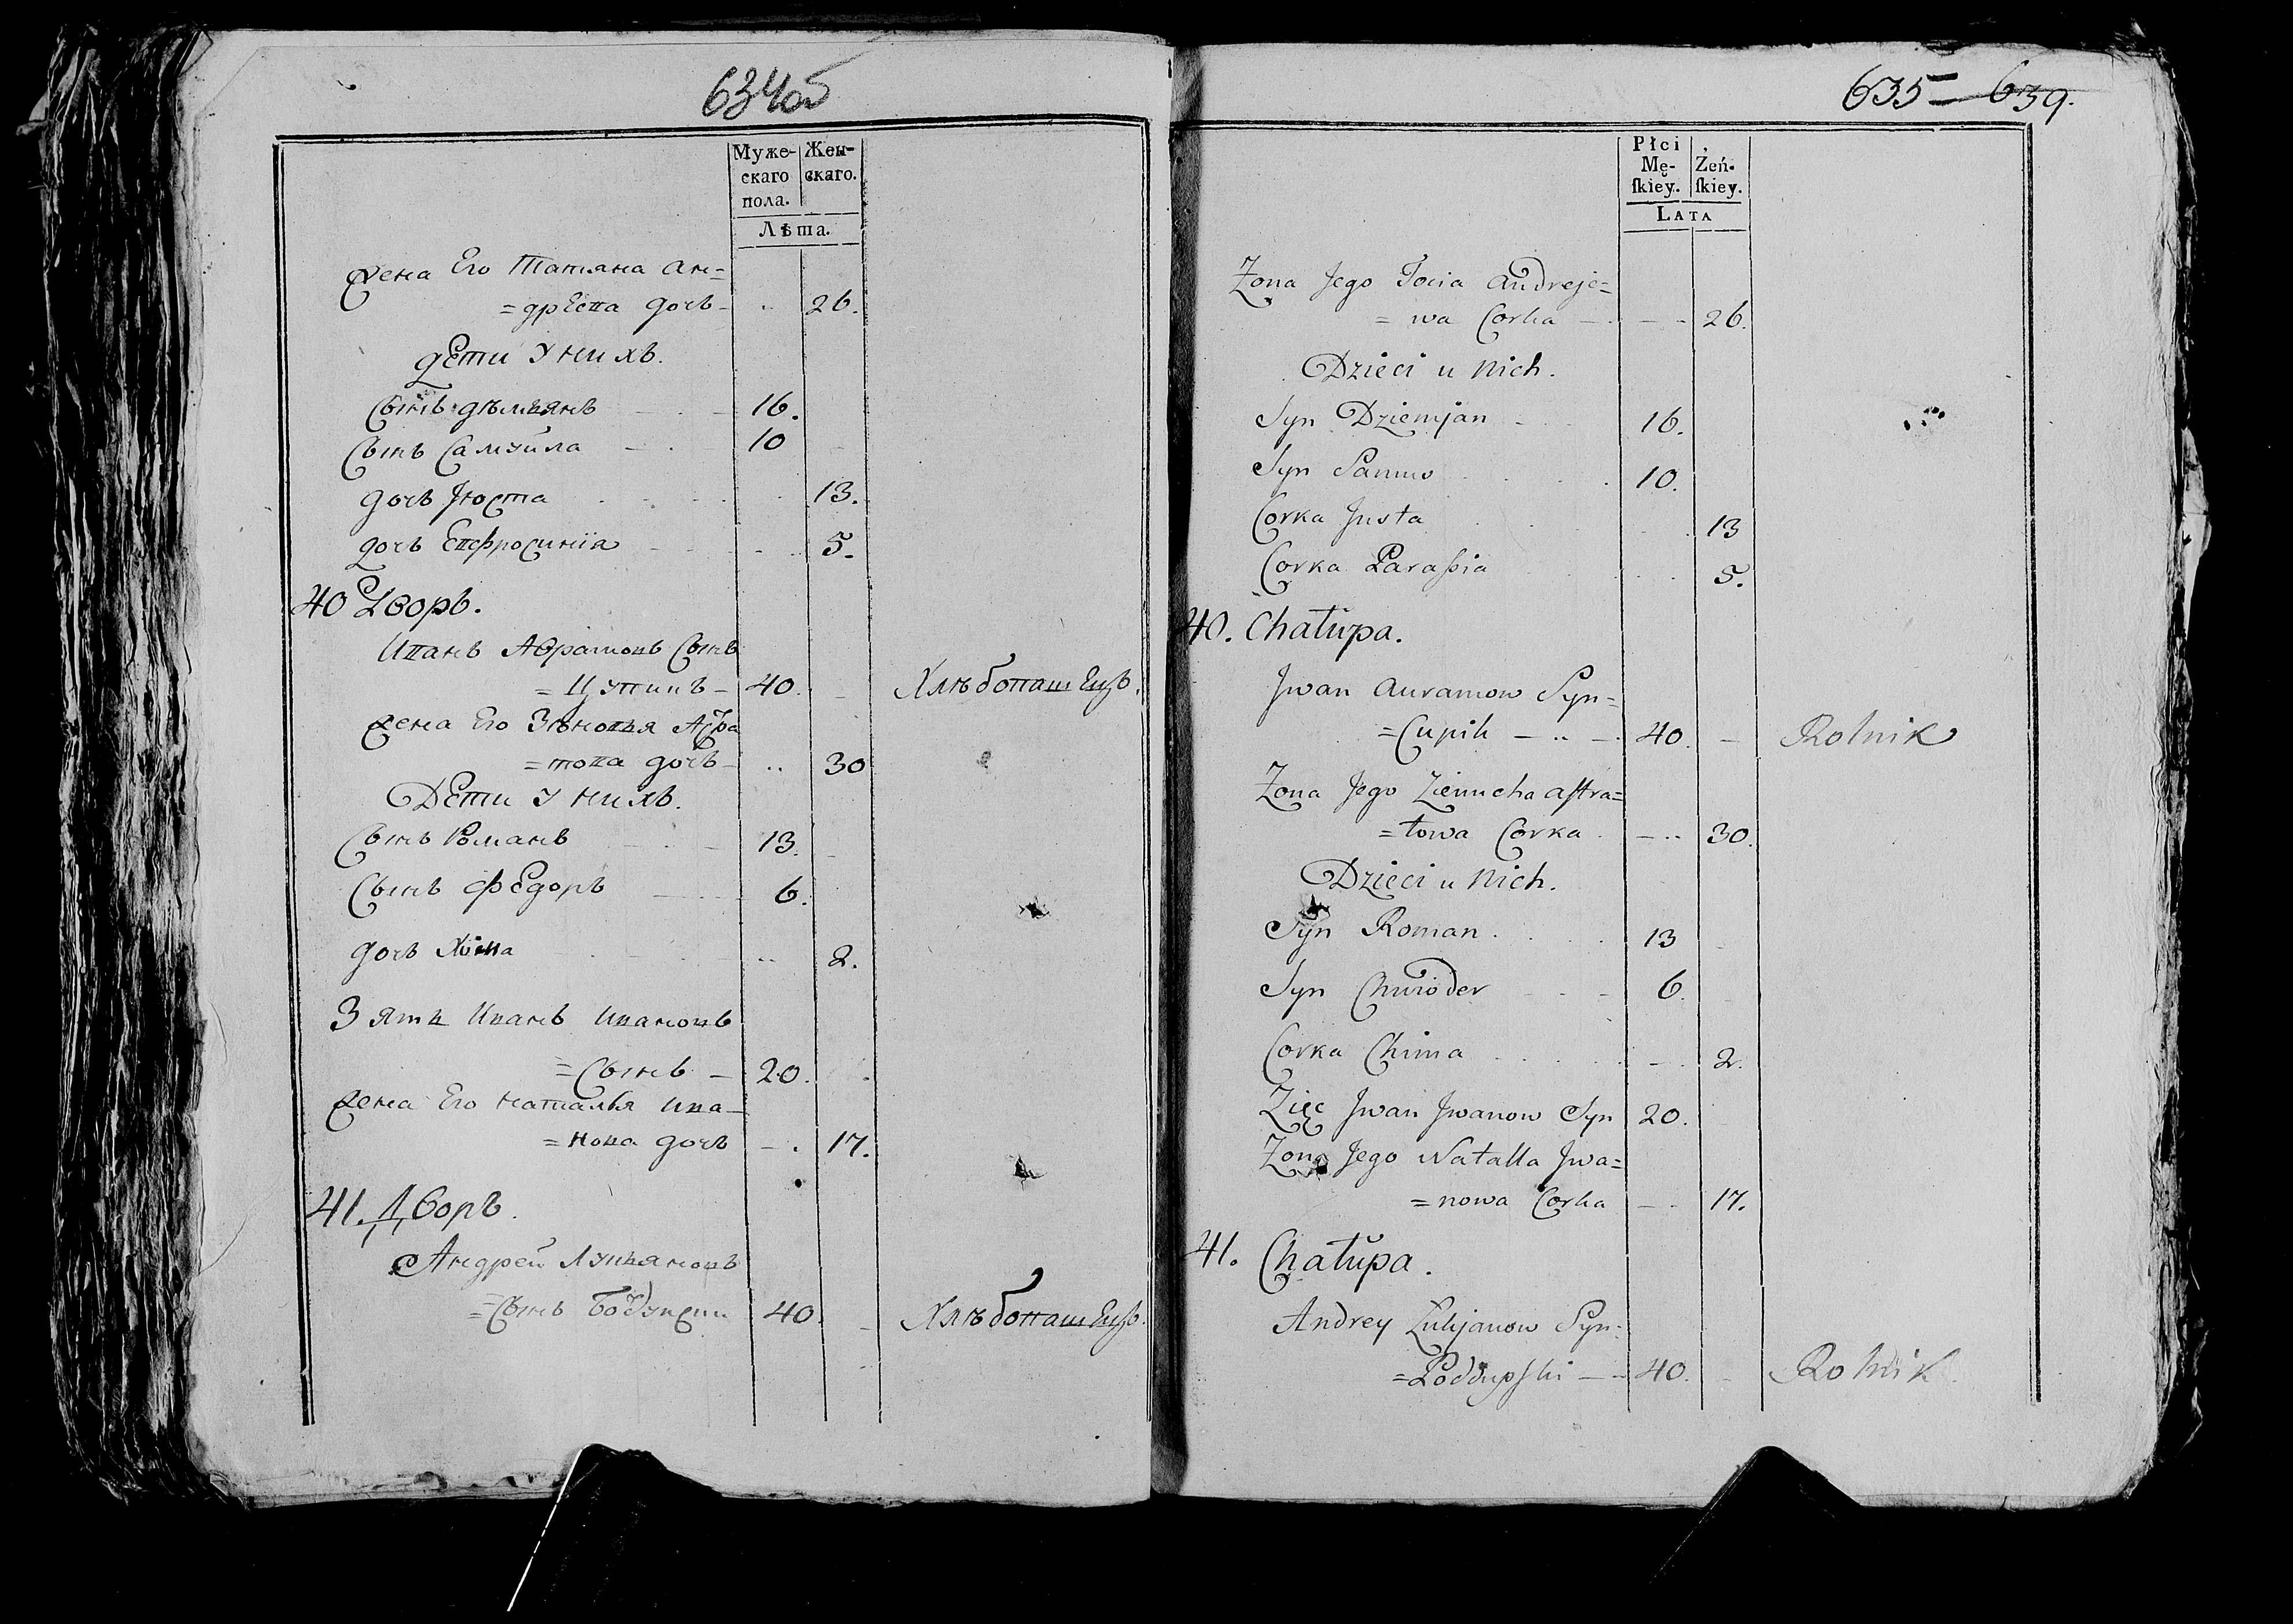 634об
Муже- Жен-
скаго скаго.
пола.
Лѣта.
жена Его Татьяна Ан=
=дрЕева дочь - .. 26.
дЕти У нихъ.
Сынъ дѣмьянъ 16.
Сынъ Самуйла 10
дочь Июста 13.
дочь Евфросинiа 5.
40 Дворъ.
Иванъ Абрамовъ Сынъ
= Цупикъ - 40. ХлѣбопашЕцъ.
жена Его Зѣновья Астра
=това дочь - .. 30
ДЕти У нихъ.
Сынъ Романъ 13.
Сынъ ФЕдоръ 6.
дочь Хима .. 2.
Зять Иванъ Ивановъ
=Сынъ - 20.
жена Его Наталья Ива-
=нова дочь - . 17.
41. Дворъ.
Андрей Лукьяновъ
=Сынъ 40 ХлѣбопашЕцъ.
635 - 639.
Płci
Mę- Żeń-
ſkiey. ſkiey.
LATA
Zona Jego Tocia Andreje=
= wa Corka - - - 26.
Dzieci u Nich.
Syn Dziemjan 16.
Syn 10.
Corka Justa 13
Corka Paraſsia 5.
40. Chałupa.
Jwan Auramow Syn=
=Cupik - .. - 40. - Rolnik
Zona Jego Zienucha Aſtra=
=towa Corka - .. 30.
Dzieci u Nich.
Syn Roman 13
Syn Chwioder 6.
Corka Chima 2.
Zięc Jwan Jwanow Syn 20.
Zona Jego Natalla Jwa=
=nowa Corka - . 17.
41. Chałupa.
Andrey Łukjanow Syn=
=Poddupſki - 40. - Rolnik